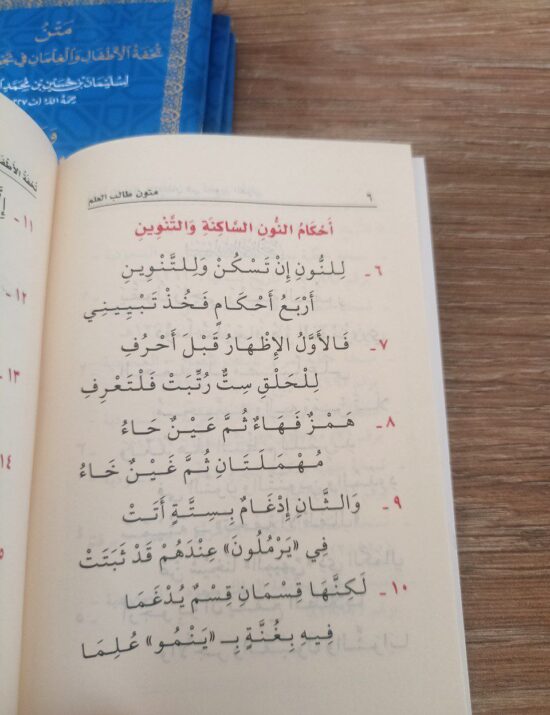 متن
تحفة الأطفال والغلمان في
لسليمان بن حسين بن محمد
رحمه الله (ت ١٢٢٧
متون طالب العلم
٦
أَحْكَامُ النُّونِ السَّاكِنَةِ وَالتَّنْوِينِ
٦ - لِلنُّونِ إِنْ تَسْكُنْ وَلِلتَّنْوِينِ
أَرْبَعُ أَحْكَامٍ فَخُذْ تَبْيِينِي
٧ - فَالأَوَّلُ الإِظْهَارُ قَبْلَ أَحْرُفِ
لِلْحَلْقِ سِتٌّ رُتِّبَتْ فَلْتَعْرِفِ
٨ - هَمْزٌ فَهَاءٌ ثُمَّ عَيْنٌ حَاءُ
مُهْمَلَتَانِ ثُمَّ غَيْنٌ خَاءُ
٩ - وَالثَّانِ إِدْغَامٌ بِسِتَّةٍ أَتَتْ
فِي «يَرْمُلُونَ» عِنْدَهُمْ قَدْ ثَبَتَتْ
١٠ - لَكِنَّهَا قِسْمَانِ قِسْمٌ يُدْغَمَا
فِيهِ بِغُنَّةٍ بِـ «يَنْمُو» عُلِمَا
١١ -
١٢ -
١٣ -
١٤